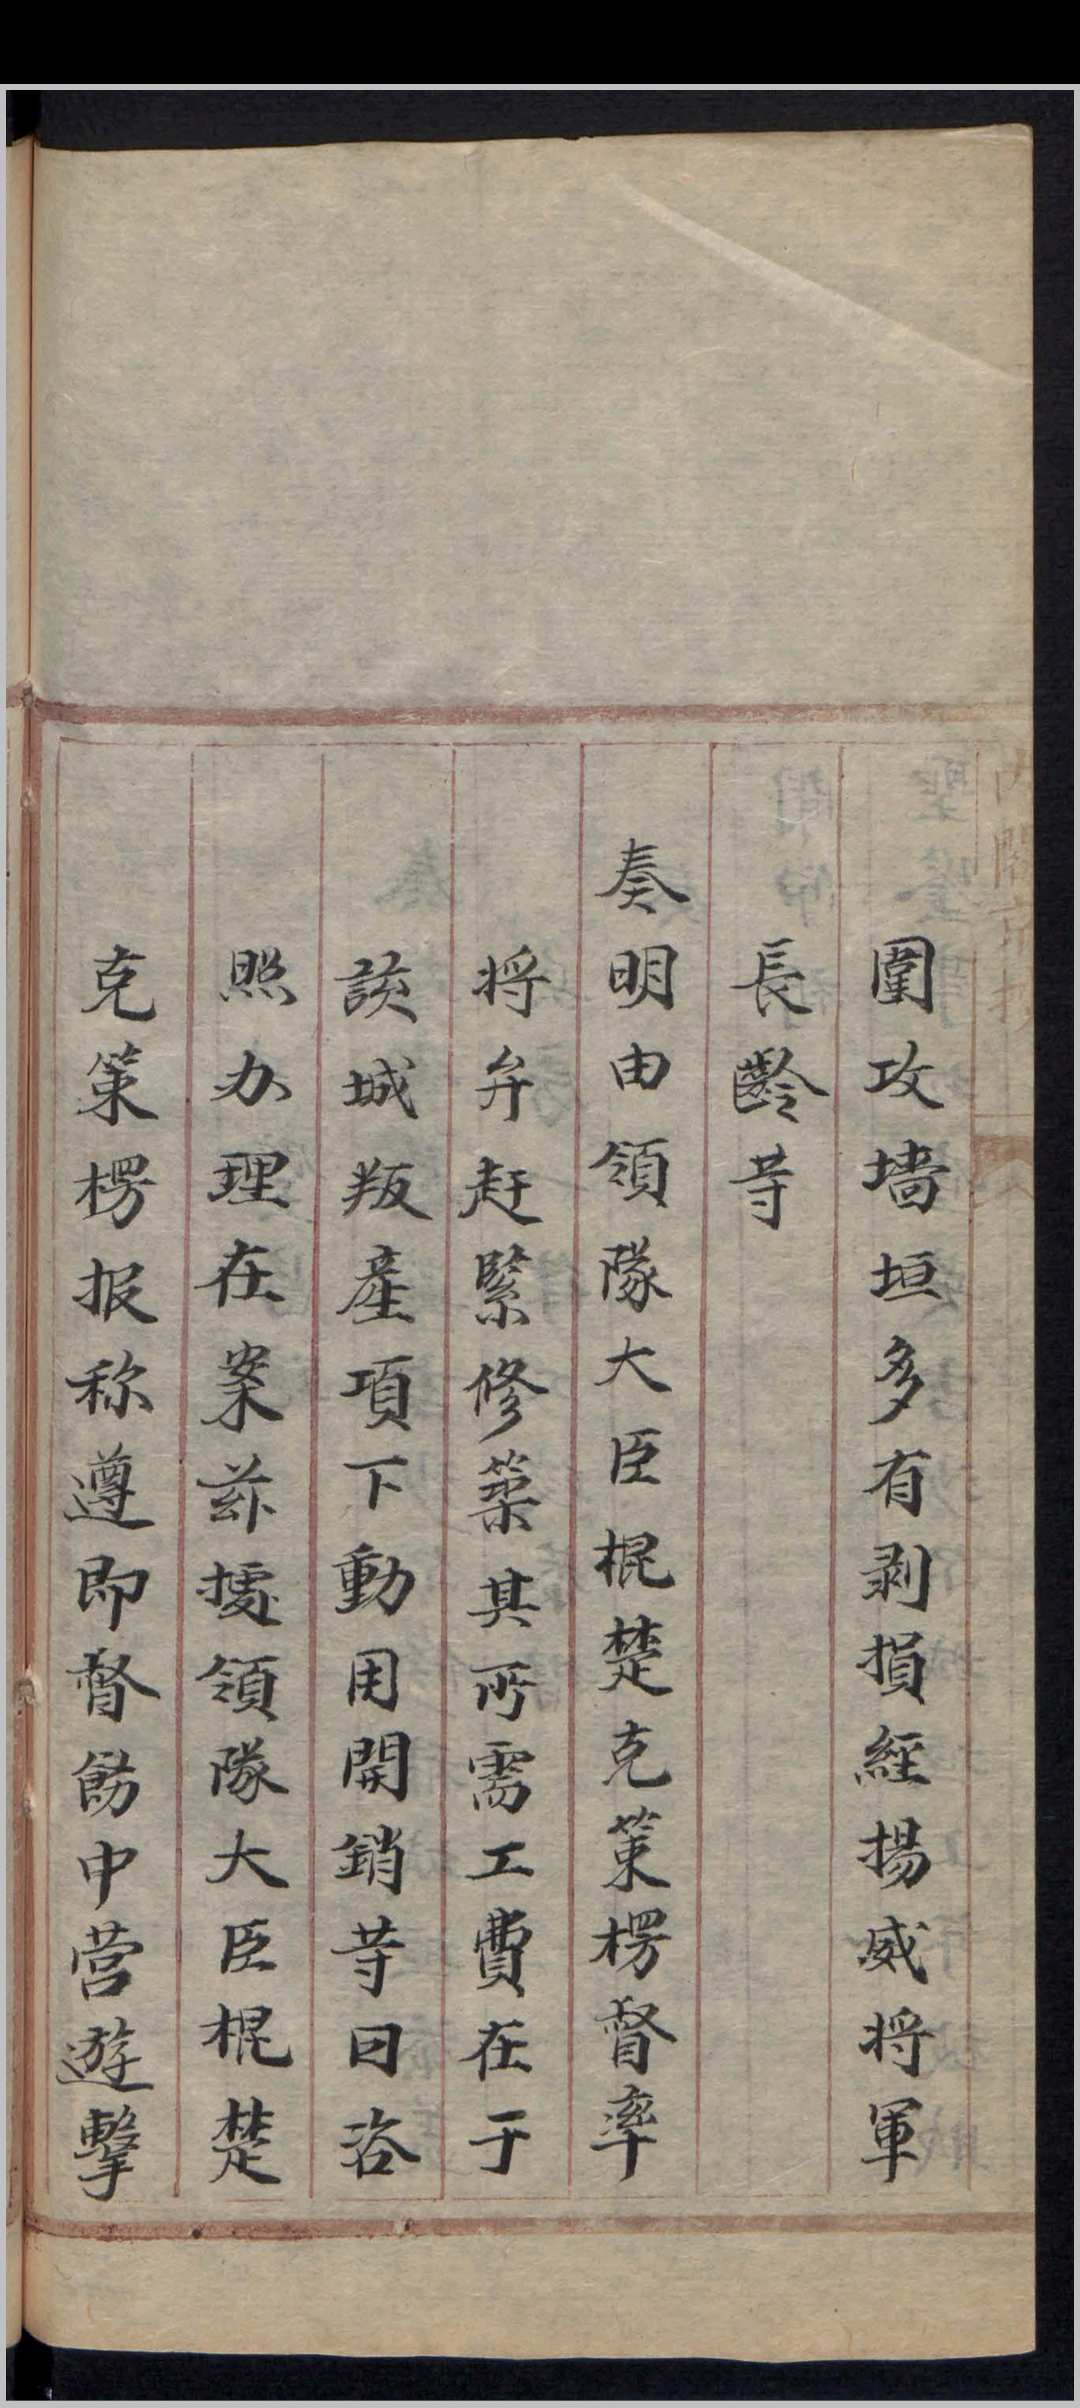 圍攻墻垣多有剥損經揚威将軍
長齡䓁
奏明由領隊大臣棍楚克策楞督率
将弁赶緊修築其所需工費在于
該城叛產項下動用開銷䓁因咨
照办理在案兹㨿領隊大臣棍楚
克策楞报称遵即督飭中营遊擊